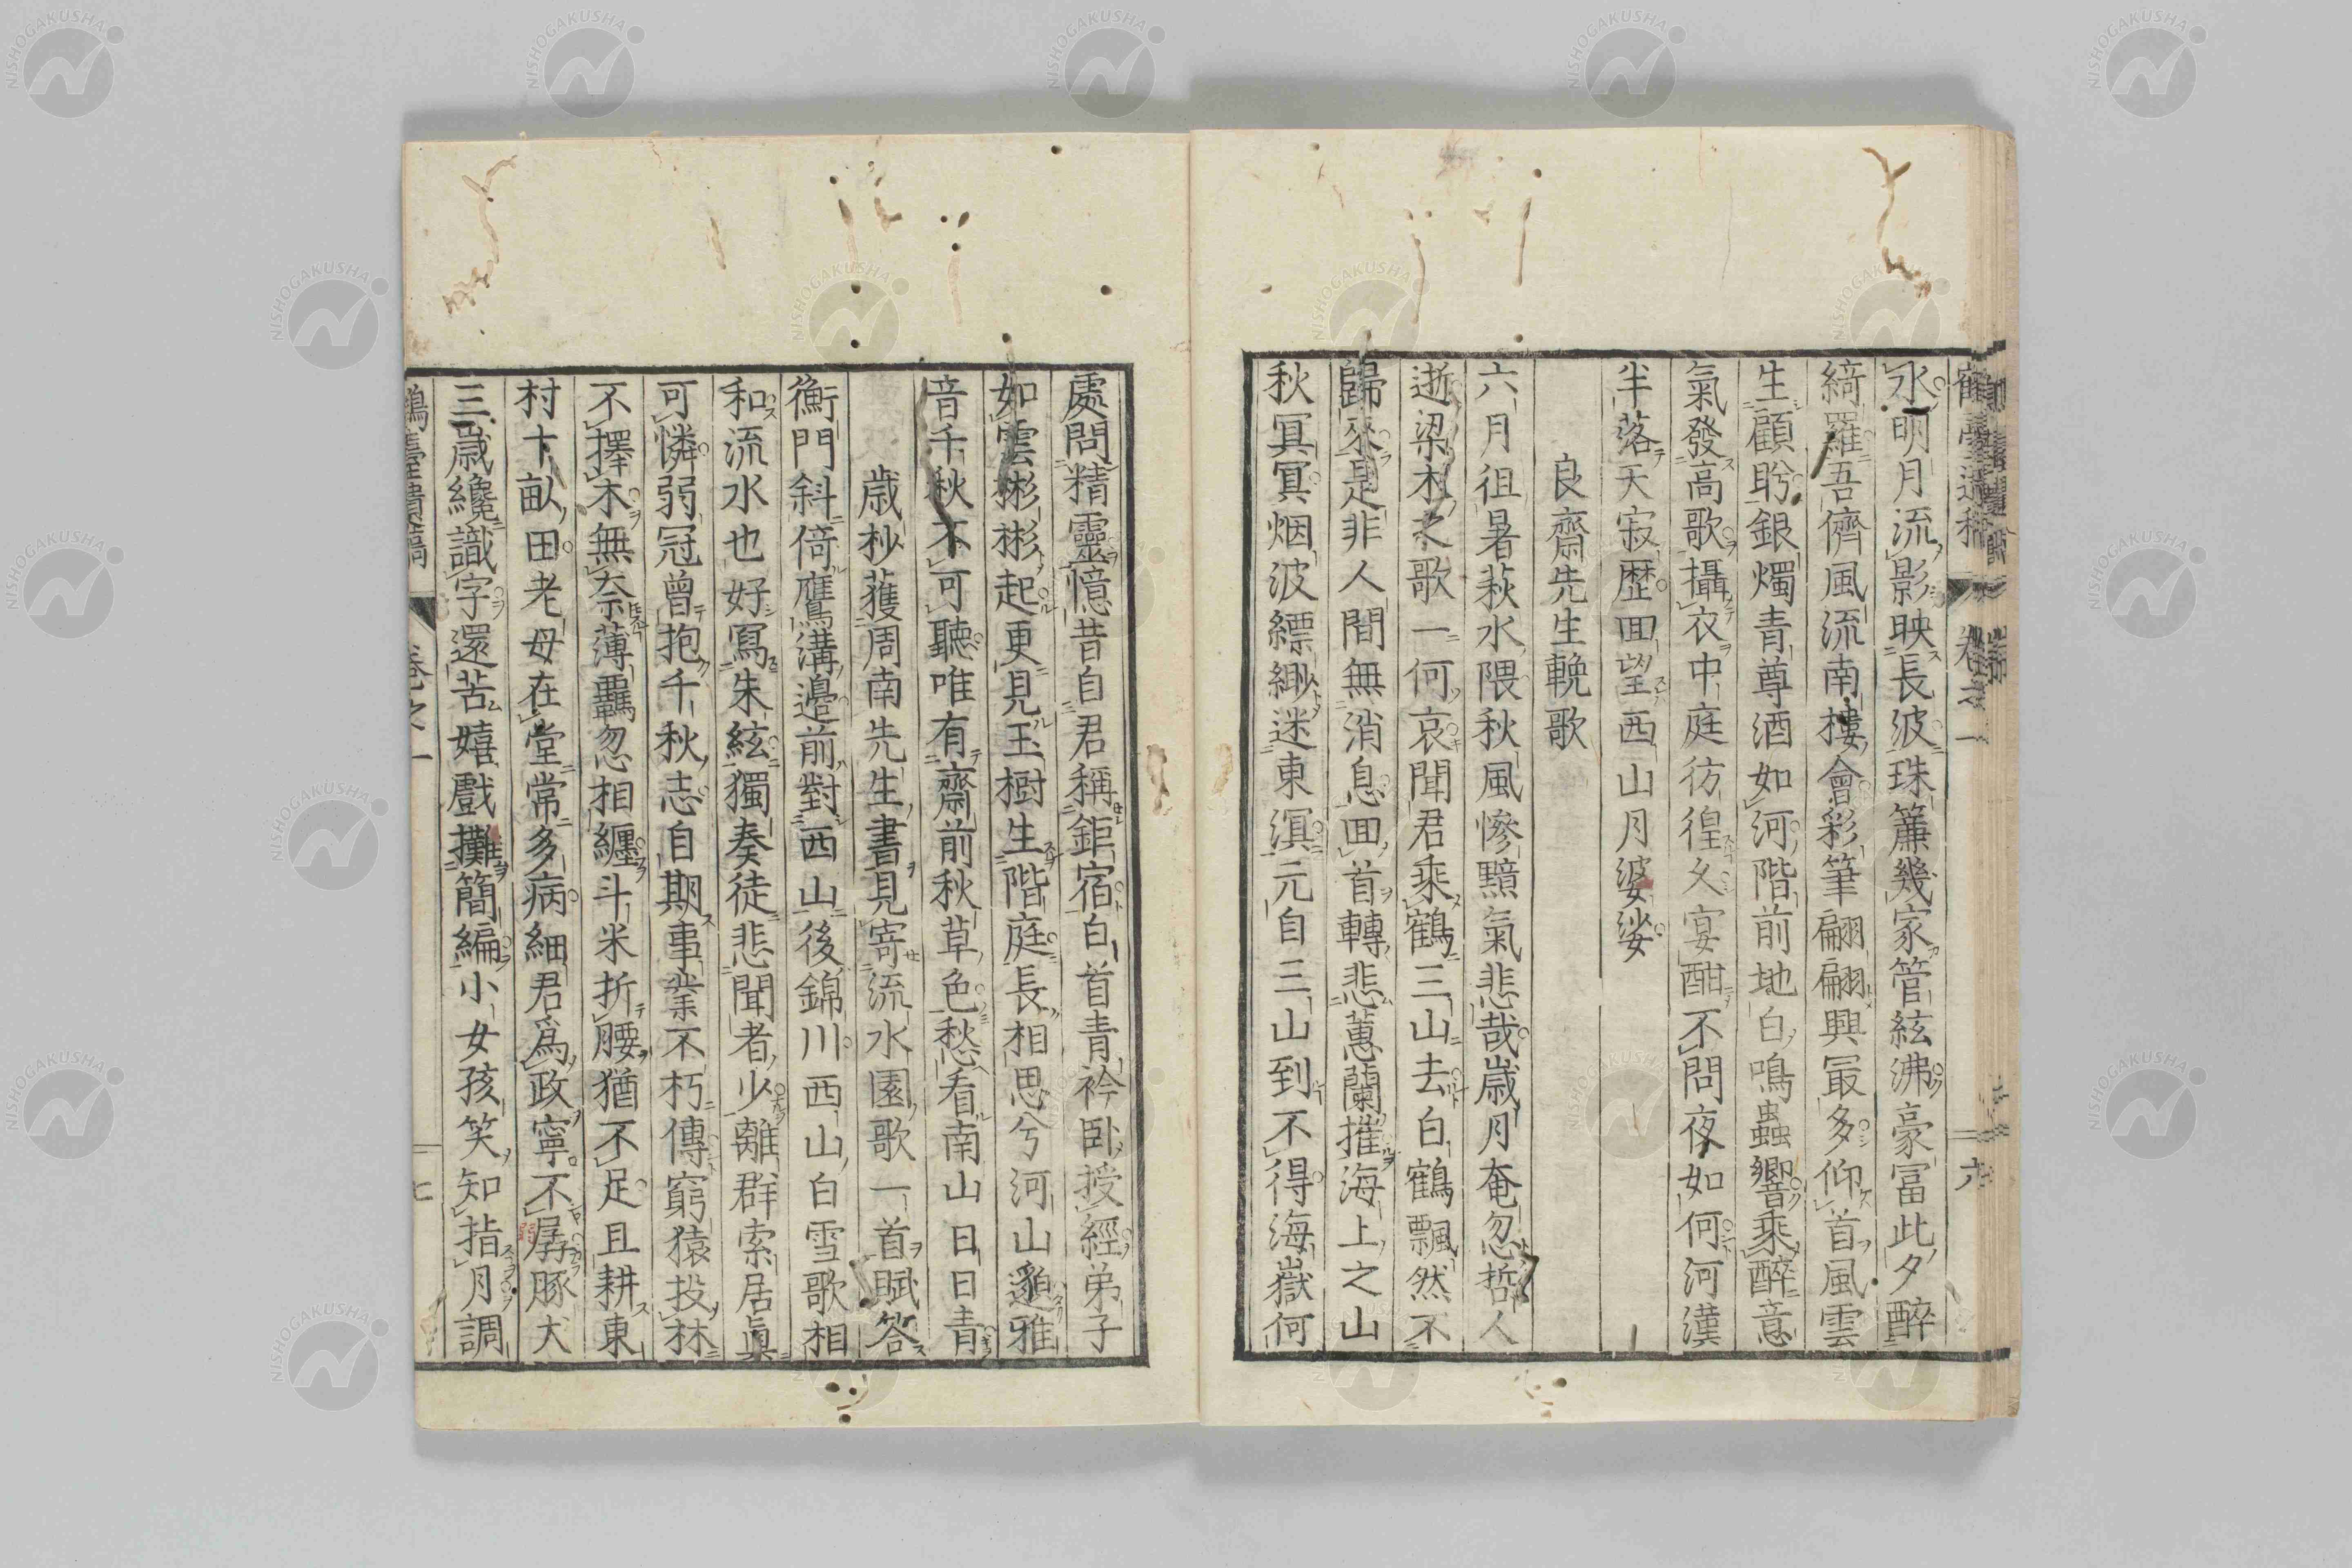 水明月流影映長波珠簾幾家管絃沸豪冨此夕醉
綺羅吾儕風流南樓會彩筆翩翩興冣多仰首風雲
生顧盻銀燭青尊酒如河階前地白鳴蟲響乘醉意
氣發高歌攝衣中庭彷徨久宴酣不問夜如何河漢
半落天寂歷回望西山月婆娑
良齋先生輓歌
六月徂暑萩水隈秋風慘黯氣悲哉歲月奄忽哲人
逝梁木之歌一何哀聞君乘鶴三山去白鶴飄然不
歸來是非人間無消息回首轉悲蕙蘭摧海上之山
秋冥冥烟波縹緲迷東溟元自三山到不得海嶽何
處問精靈憶昔自君稱鉅宿白首青衿臥授經弟子
如雲彬彬起更見玉樹生階庭長相思兮河山邈雅
音千秋不可聽唯有齋前秋草色愁看南山日日青
歲杪獲周南先生書見寄流水園歌一首賦答
衡門斜倚鷹溝邉前對西山後錦川西山白雪歌相
和流水也好寫朱絃獨奏徒悲聞者少離群索居眞
可憐弱冠曾抱千秋志自期事業不朽傳窮猿投林
不擇木無奈薄羈忽相纏斗米折腰猶不足且耕東
村十畝田老母在堂常多病細君爲政寧不孱豚犬
三歲纔識字還苦嬉戲攤簡編小女孩笑知指月調
卷之一
七